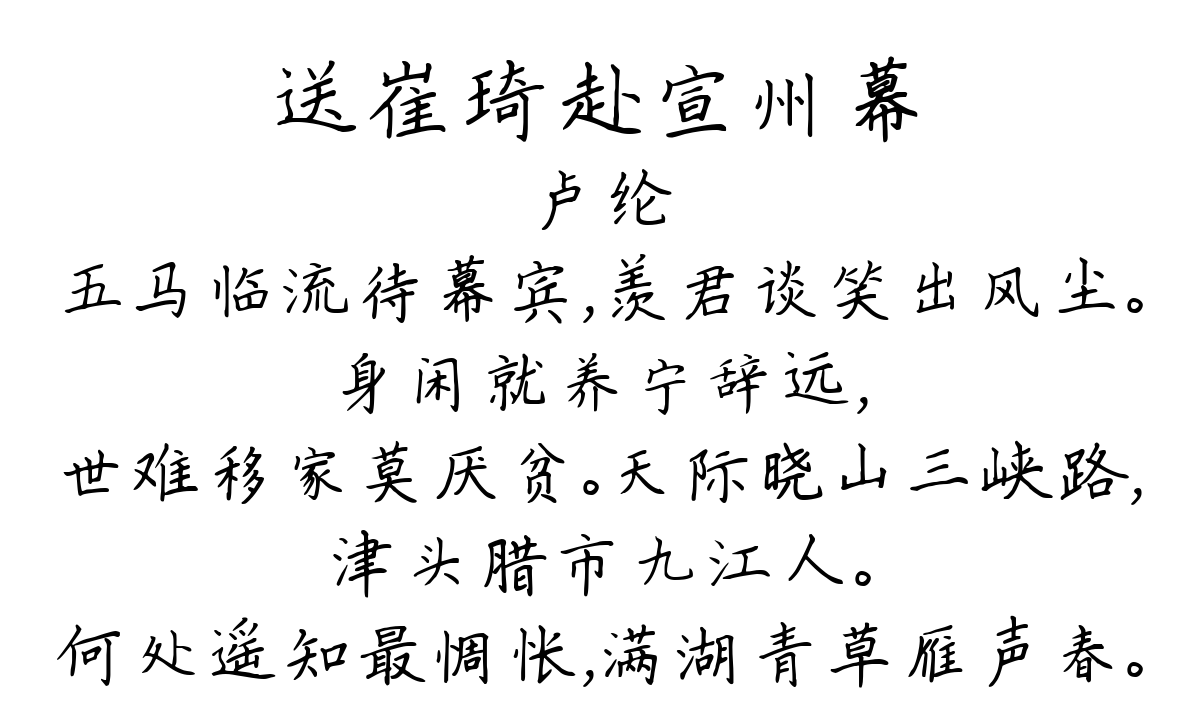 送崔琦赴宣州幕
卢纶
五马临流待幕宾,羡君谈笑出风尘。
身闲就养宁辞远,
世难移家莫厌贫。天际晓山三峡路,
津头腊市九江人。
何处遥知最惆怅,满湖青草雁声春。